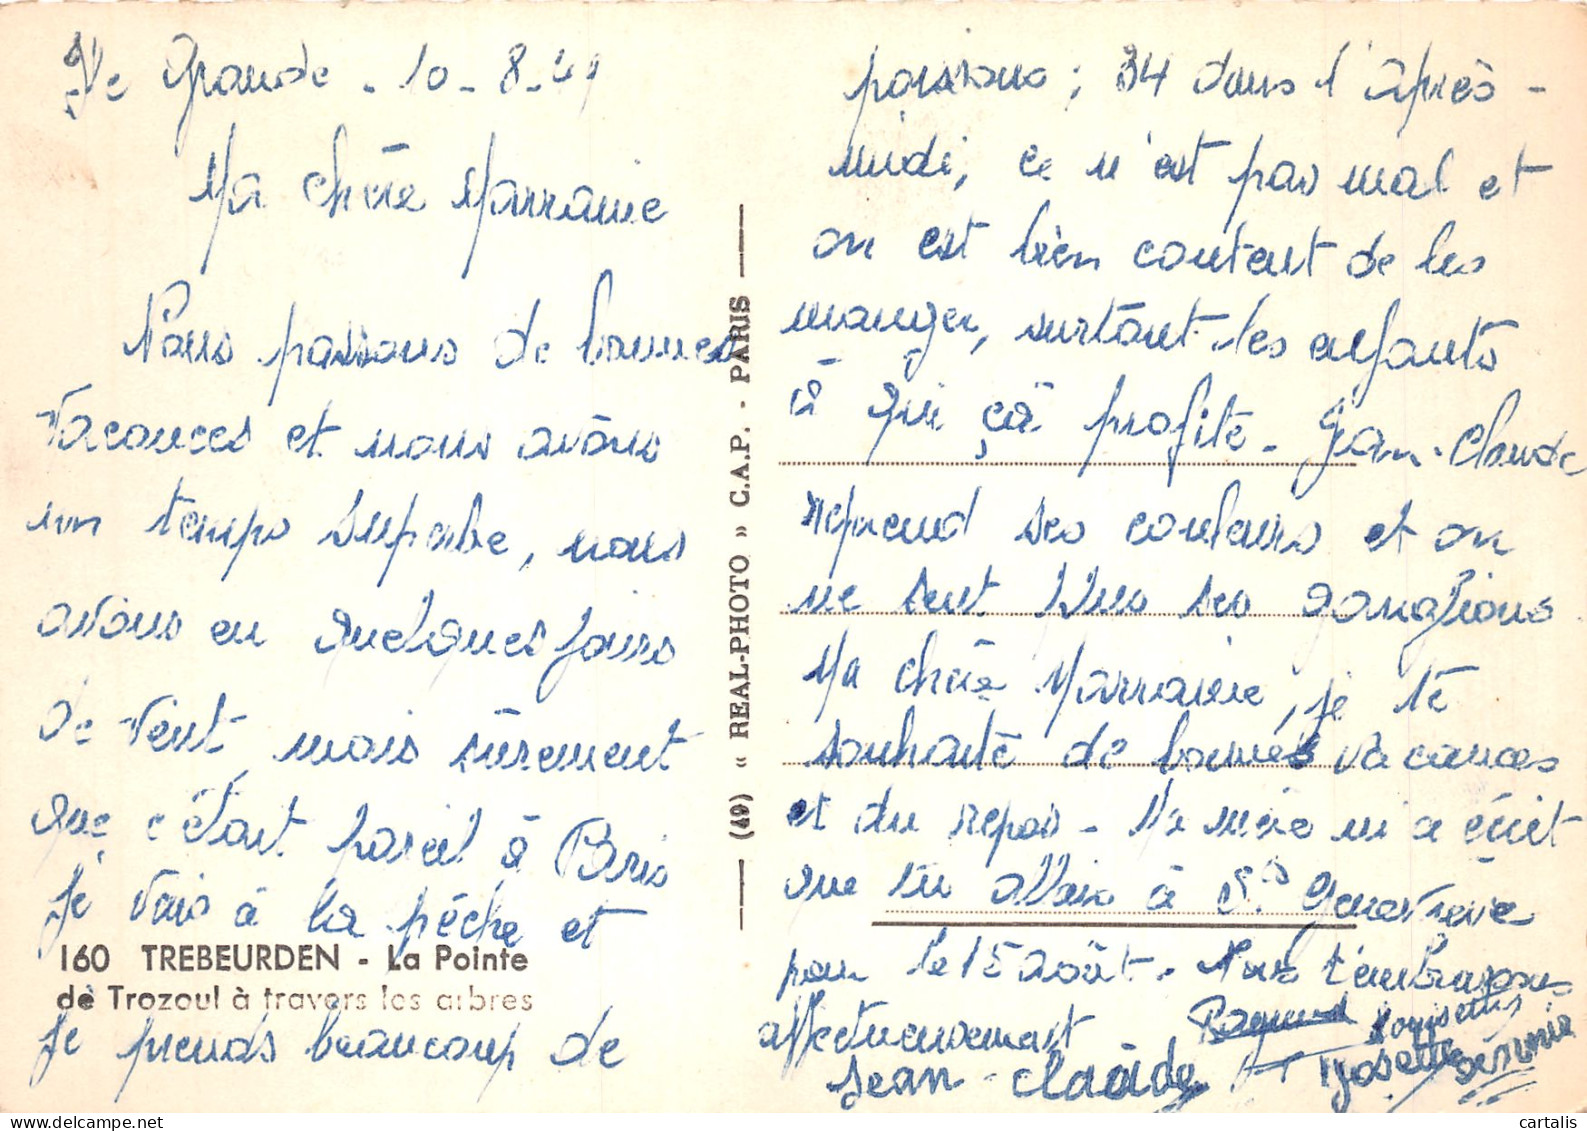 Île Grande - 10-8-49
Ma chère Marraine
Nous passons de bonnes
vacances et nous avons
un temps superbe, nous
avons eu quelques jours
de vent mais sûrement
que c'était pareil à Paris
Je vais à la pêche et
160 TREBEURDEN - La Pointe
de Trozoul à travers les arbres
je prends beaucoup de
(49) « REAL-PHOTO » C.A.P. - PARIS
poissons ; 34 dans l'après-
midi, ce n'est pas mal et
on est bien content de les
manger, surtout les enfants
à qui çà profite - Jean-Claude
reprend ses couleurs et on
ne sent plus ses ganglions
Ma chère Marraine, je te
souhaite de bonnes vacances
et du repos - Ma mère m'a écrit
que tu allais à Ste Geneviève
pour le 15 août. Nous t'embrassons
affectueusement Raymond
Jean-Claude Josette
cartalis